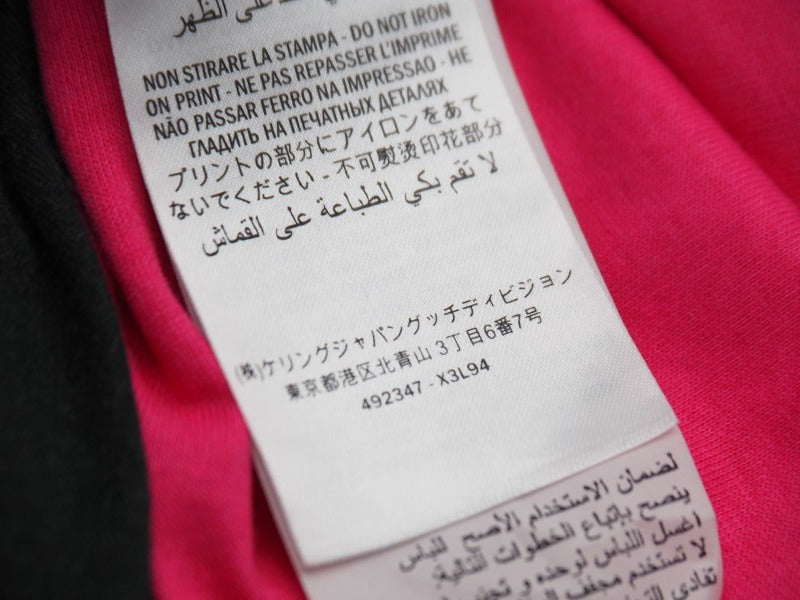 على الظهر
NON STIRARE LA STAMPA - DO NOT IRON
ON PRINT - NE PAS REPASSER L'IMPRIME
NÃO PASSAR FERRO NA IMPRESSAO - НЕ
ГЛАДИТЬ НА ПЕЧАТНЫХ ДЕТАЛЯХ
プリントの部分にアイロンをあて
ないでください - 不可熨烫印花部分
لا تقم بكي الطباعة على القماش
(株)ケリングジャパングッチディビジョン
東京都港区北青山 3丁目6番7号
492347 - X3L94
لضمان الاستخدام الأصح للباس
ينصح بإتباع الخطوات التالية:
اغسل اللباس لوحده و
لا تستخدم مجفف
تفادي